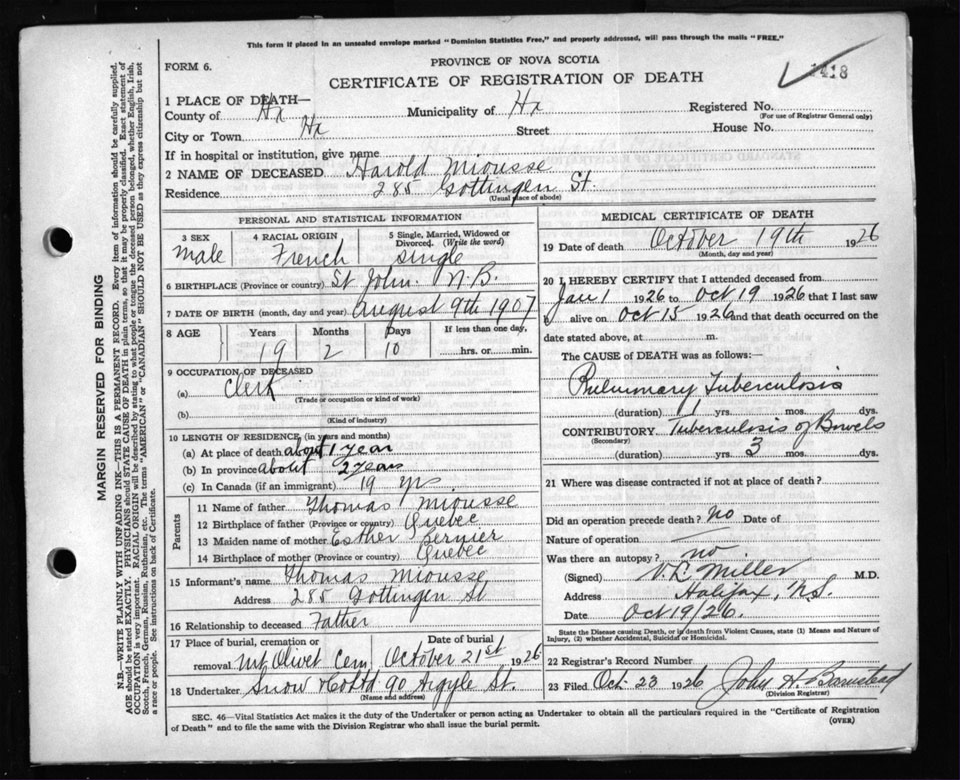 This form if placed in an unsealed envelope marked "Dominion Statistics Free," and properly addressed, will pass through the mails "FREE."
FORM 6.
PROVINCE OF NOVA SCOTIA
CERTIFICATE OF REGISTRATION OF DEATH
1418
1 PLACE OF DEATH—
County of Hx Municipality of Hx Registered No.
(For use of Registrar General only)
City or Town Hx Street House No.
If in hospital or institution, give name
2 NAME OF DECEASED Harold Miousse
Residence 285 Gottingen St.
(Usual place of abode)
PERSONAL AND STATISTICAL INFORMATION
3 SEX
Male
4 RACIAL ORIGIN
French
5 Single, Married, Widowed or Divorced. (Write the word)
single
6 BIRTHPLACE (Province or country) St John. N.B.
7 DATE OF BIRTH (month, day and year) August 9th 1907
8 AGE Years Months Days If less than one day,
19 2 10 hrs. or min.
9 OCCUPATION OF DECEASED
(a) Clerk
(Trade or occupation or kind of work)
(b)
(Kind of industry)
10 LENGTH OF RESIDENCE (in years and months)
(a) At place of death about 1 year
(b) In province about 2 years
(c) In Canada (if an immigrant) 19 yrs.
Parents
11 Name of father Thomas Miousse
12 Birthplace of father (Province or country) Quebec
13 Maiden name of mother Esther Bernier
14 Birthplace of mother (Province or country) Quebec
15 Informant's name Thomas Miousse
Address 285 Gottingen St
16 Relationship to deceased Father
17 Place of burial, cremation or removal Mt Olivet Cem Date of burial October 21st 1926
18 Undertaker Snow & Co Ltd 90 Argyle St.
(Name and address)
MEDICAL CERTIFICATE OF DEATH
19 Date of death October 19th 1926
(Month, day and year)
20 I HEREBY CERTIFY that I attended deceased from
Jan 1 1926 to Oct 19 1926 that I last saw
h alive on Oct 15 1926 and that death occurred on the
date stated above, at m.
The CAUSE of DEATH was as follows:
Pulmonary Tuberculosis
(duration) 1 yrs. mos. dys.
CONTRIBUTORY Tuberculosis of Bowels
(Secondary)
(duration) yrs. 3 mos. dys.
21 Where was disease contracted if not at place of death?
Did an operation precede death? No Date of
Nature of operation
Was there an autopsy? no
(Signed) V.L. Miller M.D.
Address Halifax, N.S.
Date Oct 19/26.
State the Disease causing Death, or in death from Violent Causes, state (1) Means and Nature of Injury, (2) whether Accidental, Suicidal or Homicidal.
22 Registrar's Record Number
23 Filed Oct. 23 1926 John H. Barnstead
(Division Registrar)
SEC. 46—Vital Statistics Act makes it the duty of the Undertaker or person acting as Undertaker to obtain all the particulars required in the "Certificate of Registration
of Death" and to file the same with the Division Registrar who shall issue the burial permit. (OVER)
MARGIN RESERVED FOR BINDING
N.B.—WRITE PLAINLY WITH UNFADING INK—THIS IS A PERMANENT RECORD. Every item of information should be carefully supplied.
AGE should be stated EXACTLY. PHYSICIANS should STATE CAUSE OF DEATH in plain terms, so that it may be properly classified. Exact statement of
OCCUPATION is very important. RACIAL ORIGIN will be described by stating to what people or tongue the deceased person belonged, whether English, Irish,
Scotch, French, German, Russian, Ruthenian, etc. The terms "AMERICAN" or "CANADIAN" SHOULD NOT BE USED as they express citizenship but not
a race or people. See instructions on back of Certificate.